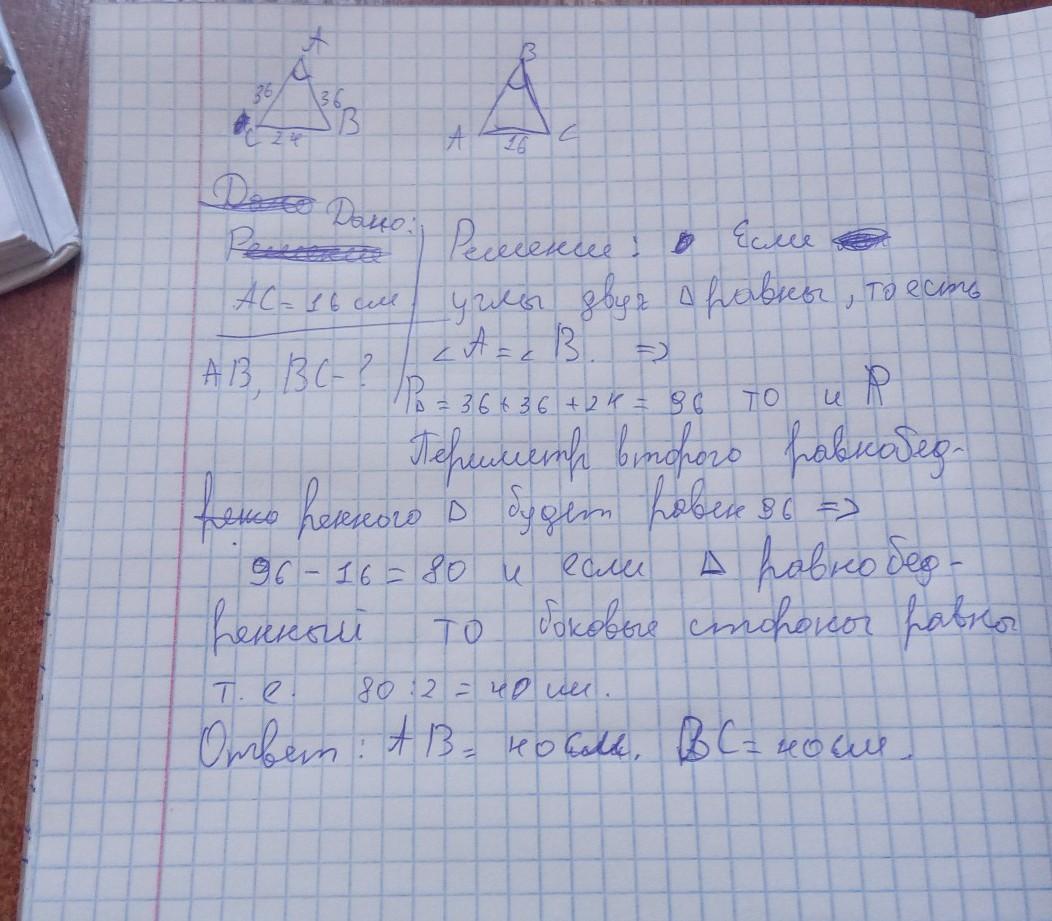 A
B
36
36
C
24
B
A
16
C
Дано:
Решение: Если
AC = 16 см
углы двух Δ равны, то есть
∠A = ∠B. =>
AB, BC - ?
PΔ = 36 + 36 + 24 = 96 то и P
Периметр второго равнобед-
ренного Δ будет равен 96 =>
96 - 16 = 80 и если Δ равнобед-
ренный то боковые стороны равны
т. е. 80 : 2 = 40 см.
Ответ: AB = 40 см. BC = 40 см.